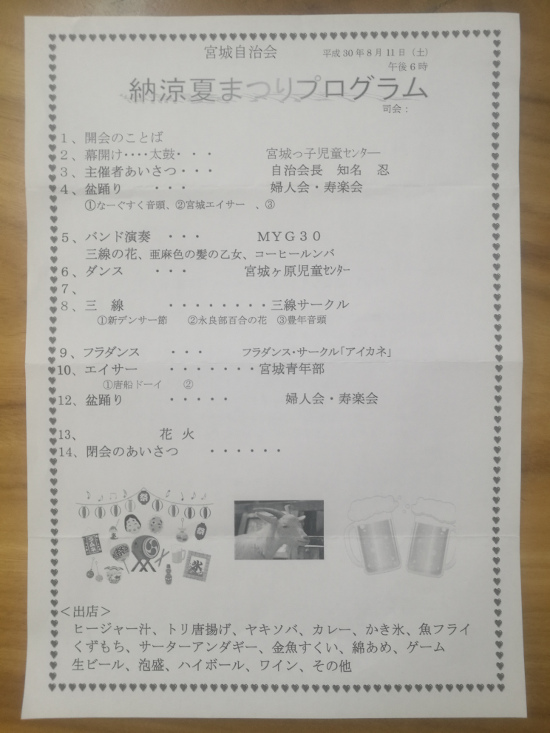 宮城自治会　平成30年8月11日（土）
午後6時
納涼夏まつりプログラム
司会：
1、開会のことば
2、幕開け・・・・太鼓・・・　宮城っ子児童センター
3、主催者あいさつ・・・　自治会長　知名　忍
4、盆踊り　・・・　婦人会・寿楽会
①なーぐすく音頭、②宮城エイサー　、③
5、バンド演奏　・・・　MYG30
三線の花、亜麻色の髪の乙女、コーヒールンバ
6、ダンス　・・・　宮城ヶ原児童センター
7、
8、三　線　・・・・・・・・三線サークル
①新デンサー節　②永良部百合の花　③豊年音頭
9、フラダンス　・・・　フラダンス・サークル「アイカネ」
10、エイサー　・・・・・・・宮城青年部
①唐船ドーイ　②
12、盆踊り　・・・・・　婦人会・寿楽会
13、　花　火
14、閉会のあいさつ　・・・・・・
氷
＜出店＞
ヒージャー汁、トリ唐揚げ、ヤキソバ、カレー、かき氷、魚フライ
くずもち、サーターアンダギー、金魚すくい、綿あめ、ゲーム
生ビール、泡盛、ハイボール、ワイン、その他